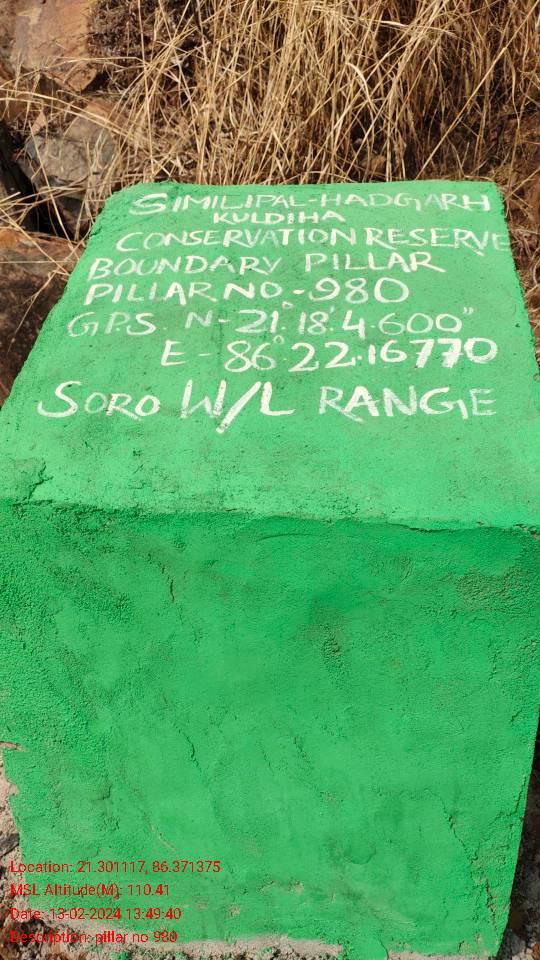 SIMILIPAL-HADGARH
KULDIHA
CONSERVATION RESERVE
BOUNDARY PILLAR
PILLAR NO-980
G.P.S. N-21°.18'.4.600"
E-86°.22.16770
SORO W/L RANGE
Location: 21.301117, 86.371375
MSL Altitude(M): 110.41
Date: 13-02-2024 13:49:40
Description: pillar no 980